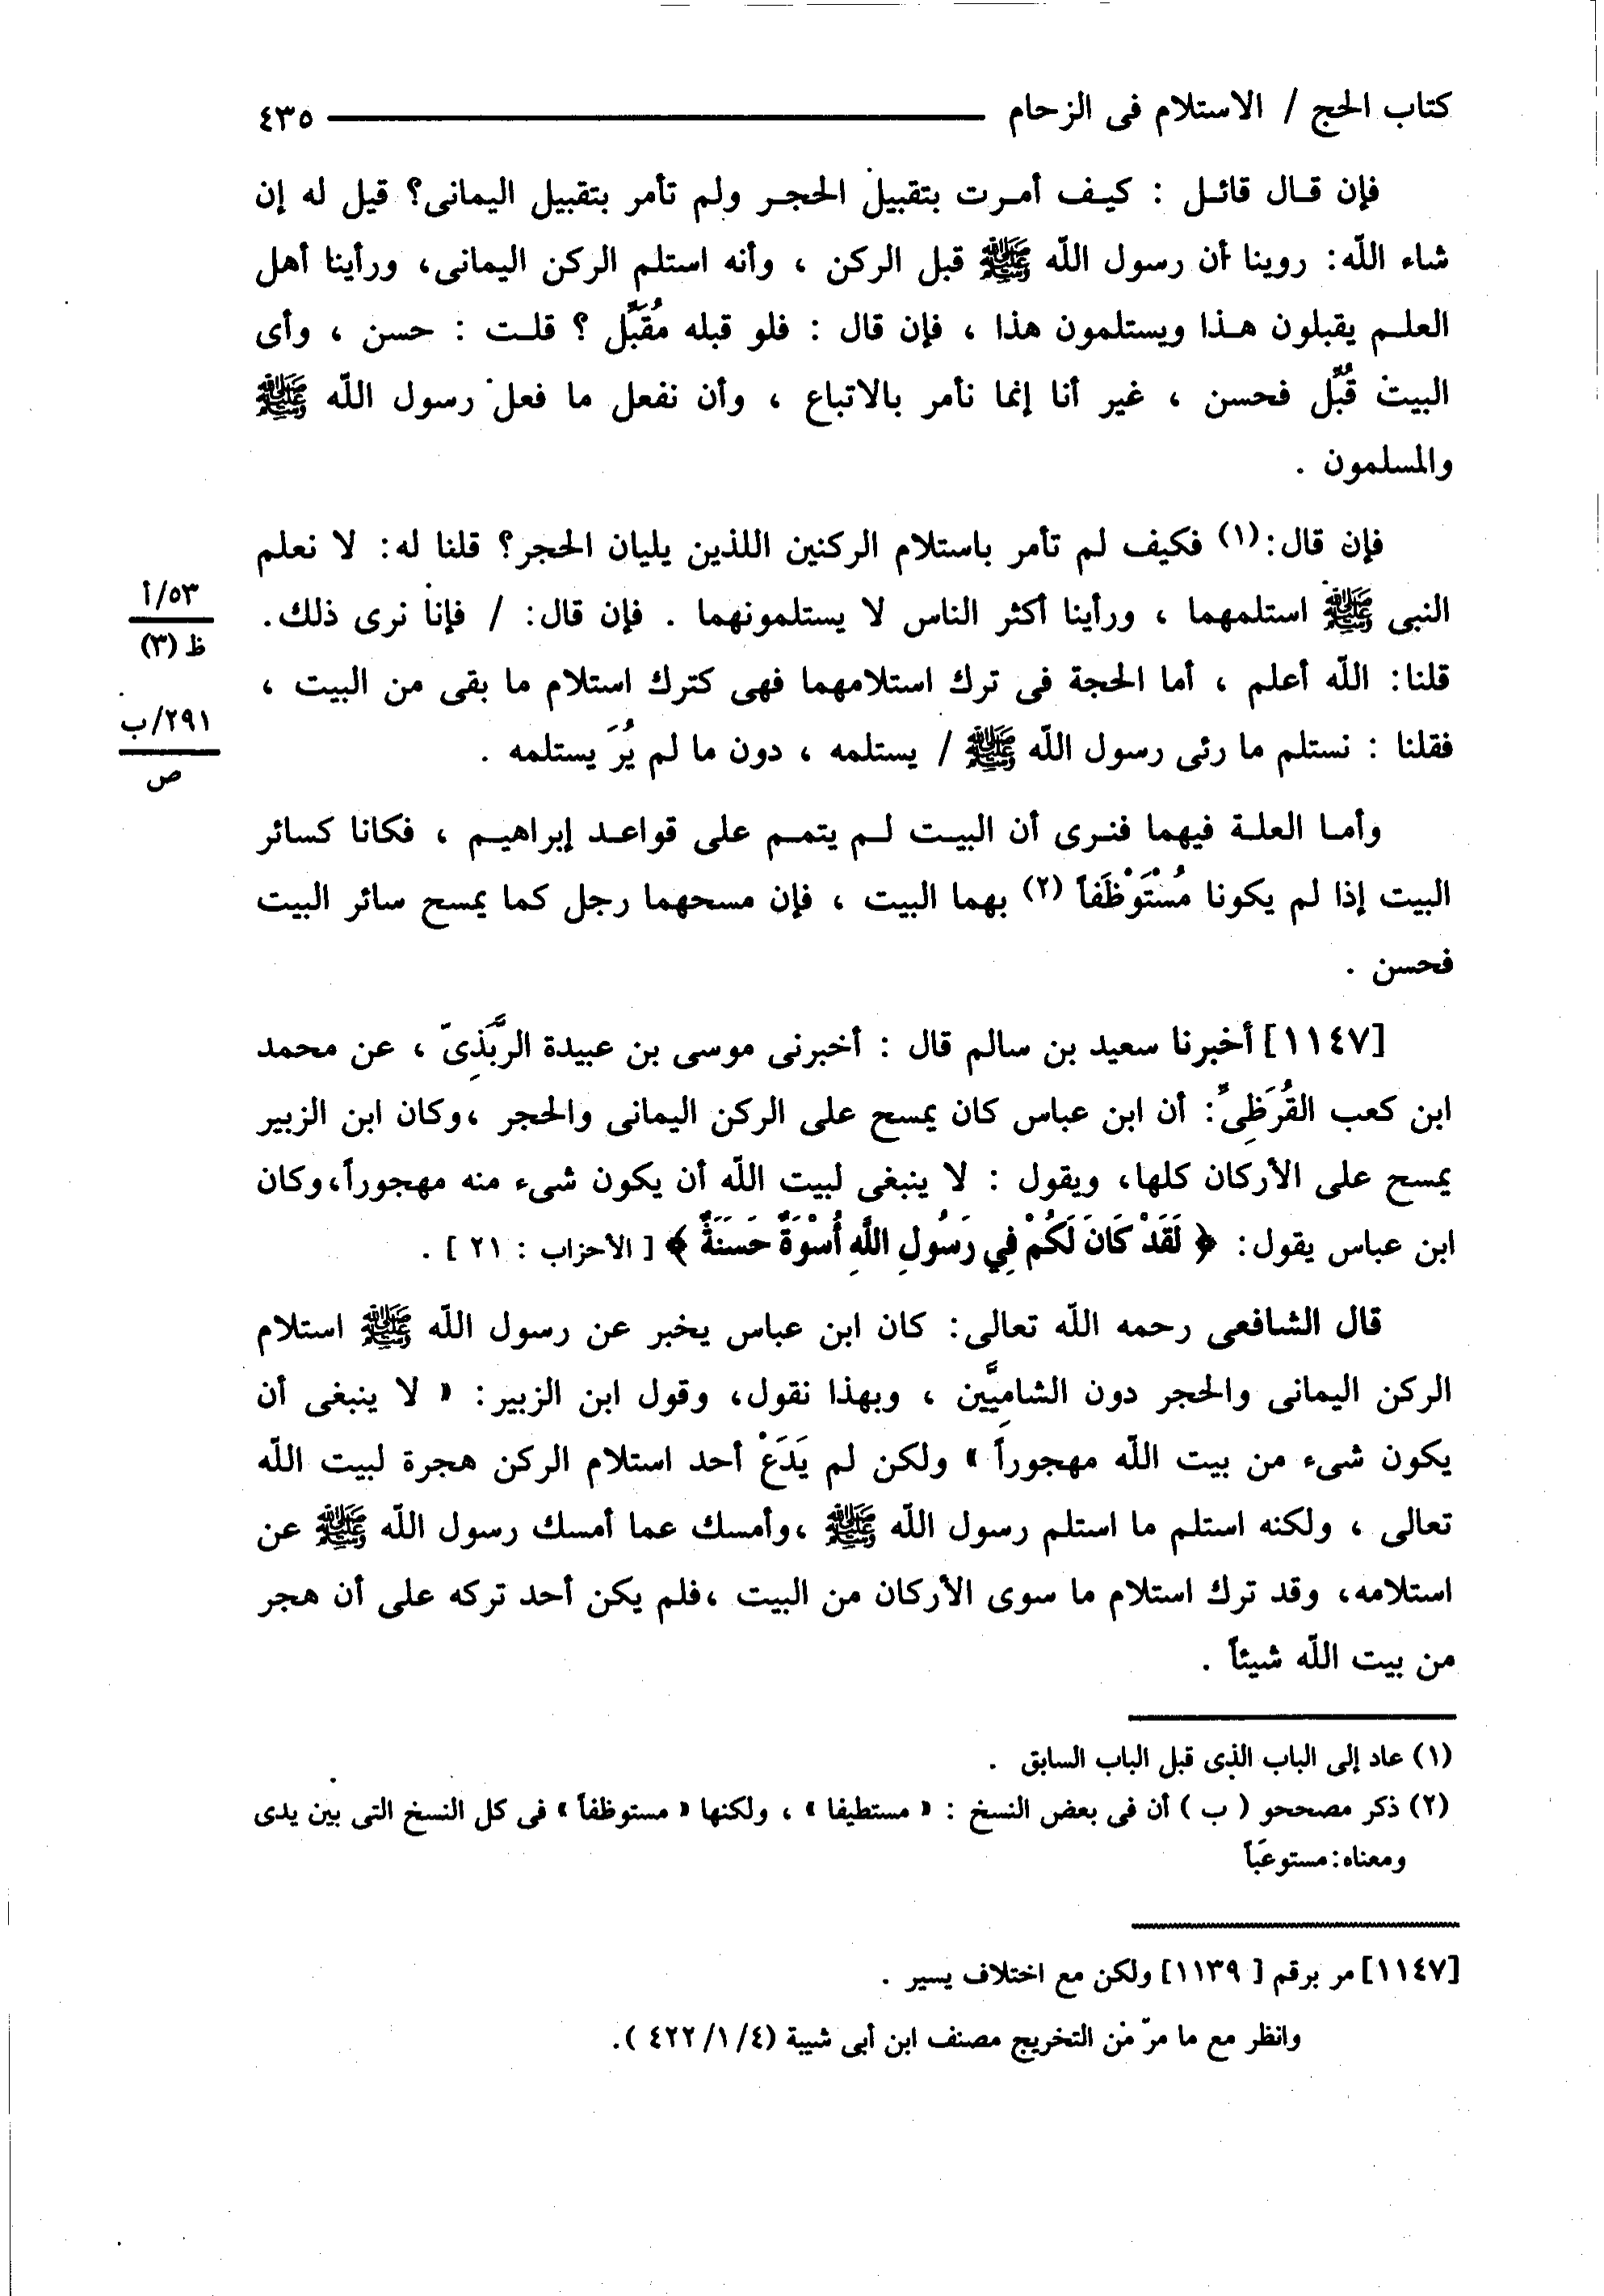 كتاب الحج / الاستلام فى الزحام ٤٣٥
فإن قال قائل : كيف أمرت بتقبيل الحجر ولم تأمر بتقبيل اليمانى؟ قيل له إن
شاء الله: روينا أن رسول الله ﷺ قبل الركن ، وأنه استلم الركن اليمانى، ورأينا أهل
العلم يقبلون هذا ويستلمون هذا ، فإن قال : فلو قبله مُقَبِّل ؟ قلت : حسن ، وأى
البيت قُبِّل فحسن ، غير أنا إنما نأمر بالاتباع ، وأن نفعل ما فعل رسول الله ﷺ
والمسلمون .
فإن قال:(١) فكيف لم تأمر باستلام الركنين اللذين يليان الحجر؟ قلنا له: لا نعلم
النبى ﷺ استلمهما ، ورأينا أكثر الناس لا يستلمونهما . فإن قال: / فإنا نرى ذلك.
٥٣/أ
ظ (٣)
قلنا: الله أعلم ، أما الحجة فى ترك استلامهما فهى كترك استلام ما بقى من البيت ،
فقلنا : نستلم ما رئى رسول الله ﷺ / يستلمه ، دون ما لم يُرَ يستلمه .
٢٩١/ب
ص
وأما العلة فيهما فنرى أن البيت لم يتمم على قواعد إبراهيم ، فكانا كسائر
البيت إذا لم يكونا مُسْتَوْظَفاً (٢) بهما البيت ، فإن مسحهما رجل كما يمسح سائر البيت
فحسن .
[١١٤٧] أخبرنا سعيد بن سالم قال : أخبرنى موسى بن عبيدة الرَّبَذِىّ ، عن محمد
ابن كعب القُرَظِىِّ: أن ابن عباس كان يمسح على الركن اليمانى والحجر ،وكان ابن الزبير
يمسح على الأركان كلها، ويقول : لا ينبغى لبيت الله أن يكون شىء منه مهجوراً،وكان
ابن عباس يقول: ﴿ لَقَدْ كَانَ لَكُمْ فِي رَسُولِ اللَّهِ أُسْوَةٌ حَسَنَةٌ ﴾ [ الأحزاب : ٢١ ] .
قال الشافعى رحمه الله تعالى: كان ابن عباس يخبر عن رسول الله ﷺ استلام
الركن اليمانى والحجر دون الشامِيَّين ، وبهذا نقول، وقول ابن الزبير: « لا ينبغى أن
يكون شىء من بيت الله مهجوراً » ولكن لم يَدَعْ أحد استلام الركن هجرة لبيت الله
تعالى ، ولكنه استلم ما استلم رسول الله ﷺ ،وأمسك عما أمسك رسول الله ﷺ عن
استلامه، وقد ترك استلام ما سوى الأركان من البيت ،فلم يكن أحد تركه على أن هجر
من بيت الله شيئاً .
(١) عاد إلى الباب الذى قبل الباب السابق .
(٢) ذكر مصححو ( ب ) أن فى بعض النسخ : « مستطيفا » ، ولكنها « مستوظفاً » فى كل النسخ التى بين يدى
ومعناه: مستوعَباً
[١١٤٧] مر برقم [ ١١٣٩] ولكن مع اختلاف يسير .
وانظر مع ما مرّ من التخريج مصنف ابن أبى شيبة (٤/ ١/ ٤٢٢ ).